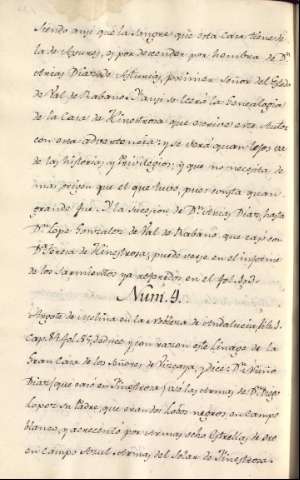 Siendo assi que la sangre que esta Casa tiene de
la de Ayures, es por descender por hembra de Dn
Arias Diaz de Asturias, primer Señor del Estado
de Val de Rabano. Y assi se leerá la Genealogia
de la Casa de Hinestrosa que escrive este Autor
con esta advertencia; y se verá quan lejos va
de las historias, y Privilegios; y que no necesita de
mas origen que el que tuvo, pues consta quan
grande fue. Y la sucesion de Dn Arias Diaz, hasta
Dn Lope Gonzalez de Val de Rabano que casó con
Da Teresa de Hinestrosa, puede verse en el informe
de los Sarmientos ya referidos en el fol.
Num. 9.
Argote de Molina en la Nobleza de Andalucia lib. 1.
Cap. 84 fol. 85, deduce y con razon este linage de la
Gran Casa de los Señores de Vizcaya, y dice: Dn Nuño
Diaz (que casó en Finestrosa) usó las Armas de Dn Diego
Lopez su Padre, que eran dos lobos negros en campo
blanco, y acrecentó por Armas ocho Estrellas de oro
en campo Azul Armas del Solar de Finestrosa.